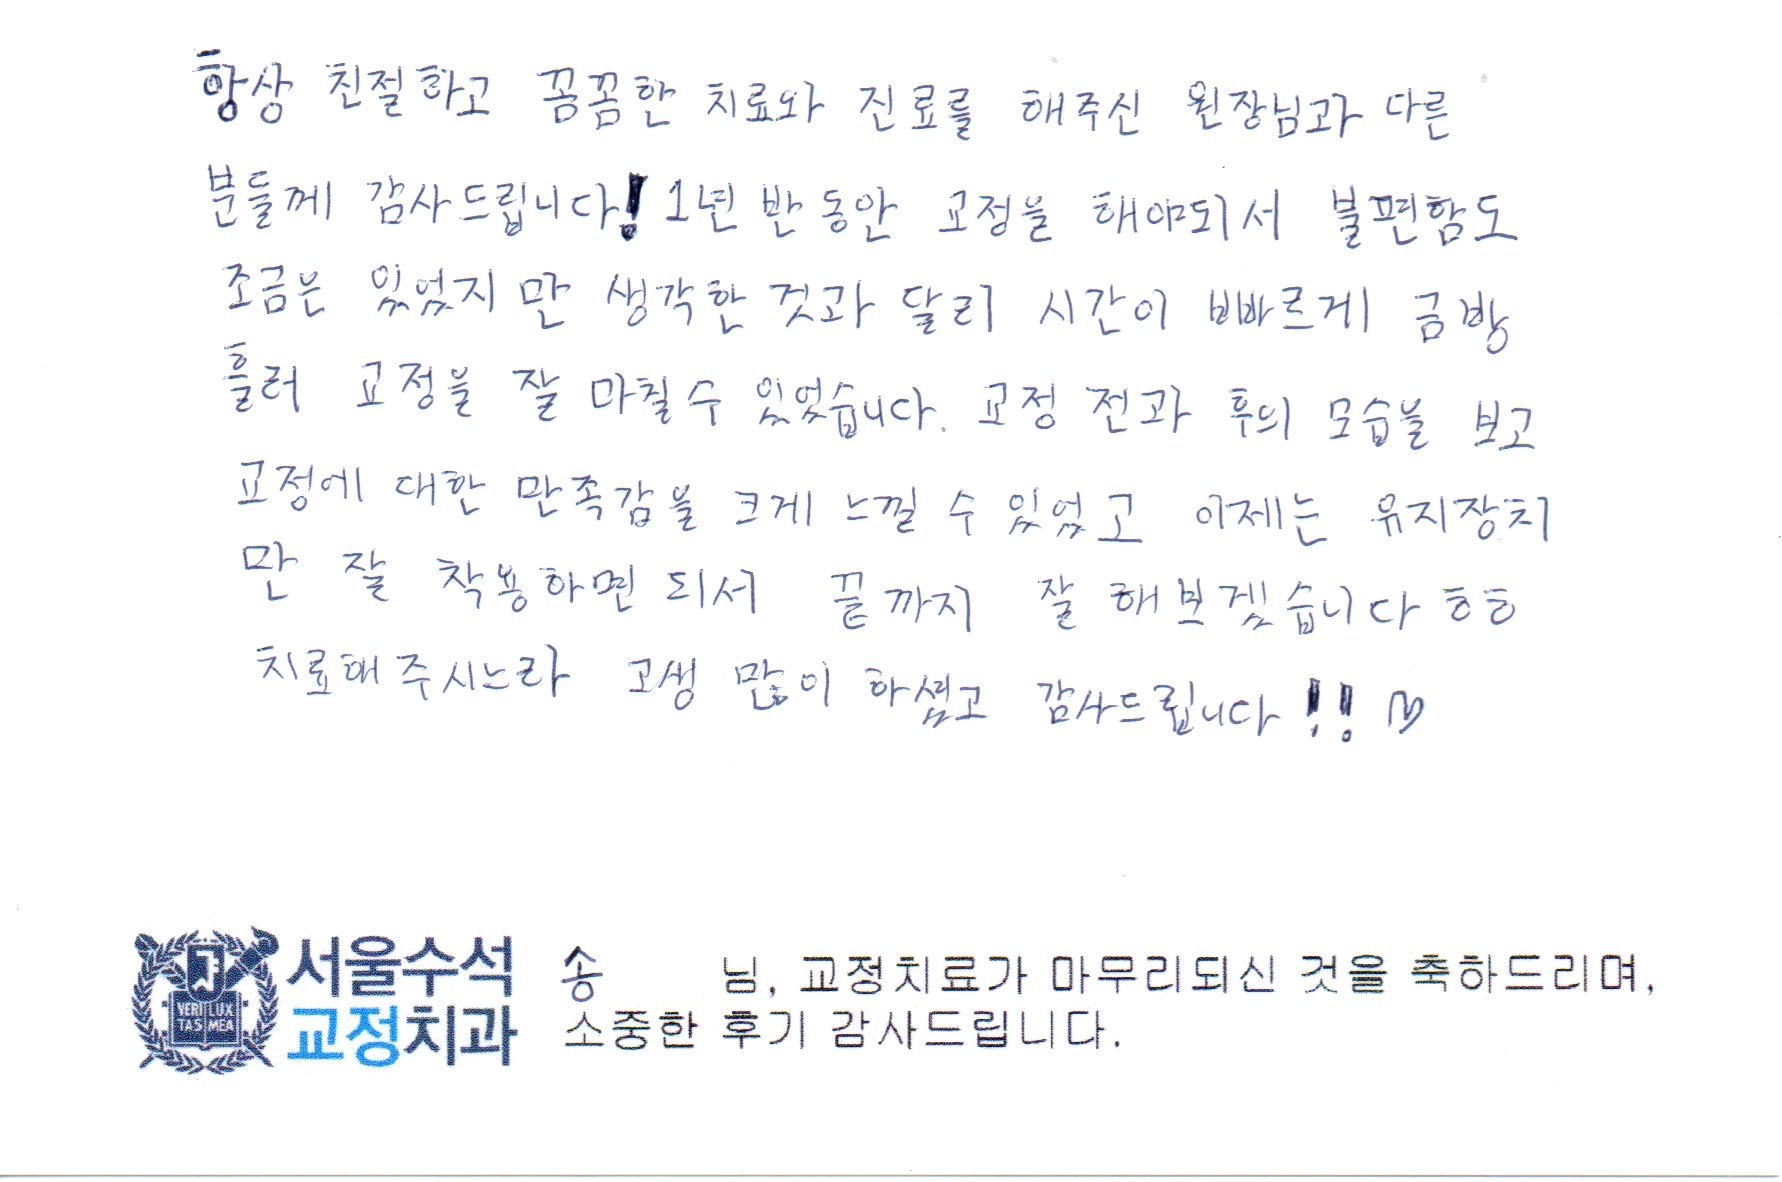 항상 친절하고 꼼꼼한 치료와 진료를 해주신 원장님과 다른
분들께 감사드립니다! 1년 반 동안 교정을 해야되서 불편함도
조금은 있었지만 생각한 것과 달리 시간이 빠르게 금방
흘러 교정을 잘 마칠 수 있었습니다. 교정 전과 후의 모습을 보고
교정에 대한 만족감을 크게 느낄 수 있었고 이제는 유지장치
만 잘 착용하면 되서 끝까지 잘 해보겠습니다 ㅎㅎ
치료해주시느라 고생 많이 하셨고 감사드립니다!! ♡
VERI LUX
TAS MEA
서울수석
교정치과
송 님, 교정치료가 마무리되신 것을 축하드리며,
소중한 후기 감사드립니다.